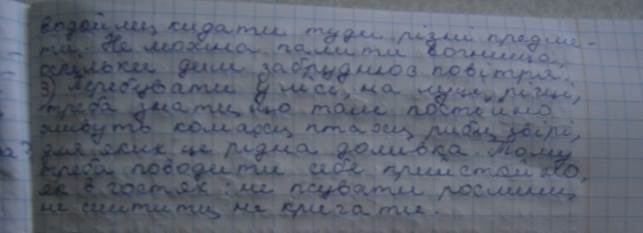 водоймец кидати туди різні предме-
ти. Не можна палити вогнища,
оскільки дим забруднює повітря.
3) Перебувати у лісі, на луці, річці,
треба знати, що там постійно
живуть комахи, птахи, риби, звірі,
для яких це рідна домівка. Тому
треба поводити себе пристойно,
як в гостях: не псувати рослини,
не смітити, не кричати.